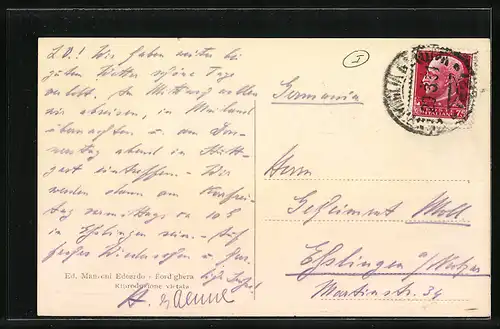 L.D.! Wir haben weiter bei
gutem Wetter schöne Tage
verlebt. Am Mittwoch wollen
wir abreisen, in Mailand
übernachten u. am Don-
nerstag abend in Stutt-
gart eintreffen. - Wir
werden dann am Karfrei-
tag vormittags ca 10
in Esslingen sein. - Auf
frohes Wiedersehen u.
Ed. Mamoni Edoardo - Bordighera
Riproduzione vietata
Germania
Herrn
Moll
Esslingen a/Neckar
Martinstr. 34